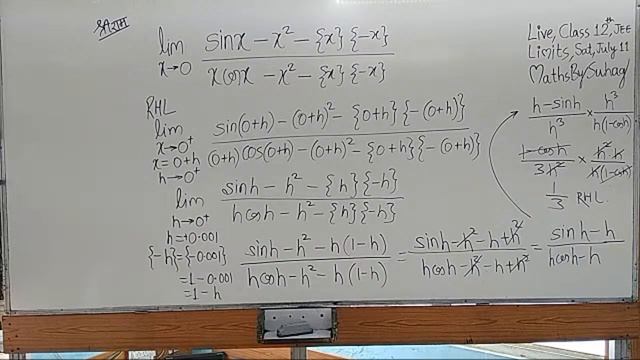 श्रीराम
lim x→0 (sinx − x² − {x}{−x}) / (x cosx − x² − {x}{−x})
Live, Class 12th, JEE
Limits, Sat, July 11
MathsBySuhag
RHL
lim x→0⁺ x=0+h h→0⁺ (sin(0+h) − (0+h)² − {0+h}{−(0+h)}) / ((0+h)cos(0+h) − (0+h)² − {0+h}{−(0+h)})
lim h→0⁺ (sinh − h² − {h}{−h}) / (hcosh − h² − {h}{−h})
h=+0.001
{−h}={−0.001}
=1−0.001
=1−h
(sinh − h² − h(1−h)) / (hcosh − h² − h(1−h)) = (sinh − h² − h + h²) / (hcosh − h² − h + h²) = (sinh − h) / (hcosh − h)
(h−sinh)/h³ × h³/(h(1−cosh))
(1−cosh)/3h² × (h²·h)/(h(1−cosh))
1/3 RHL.